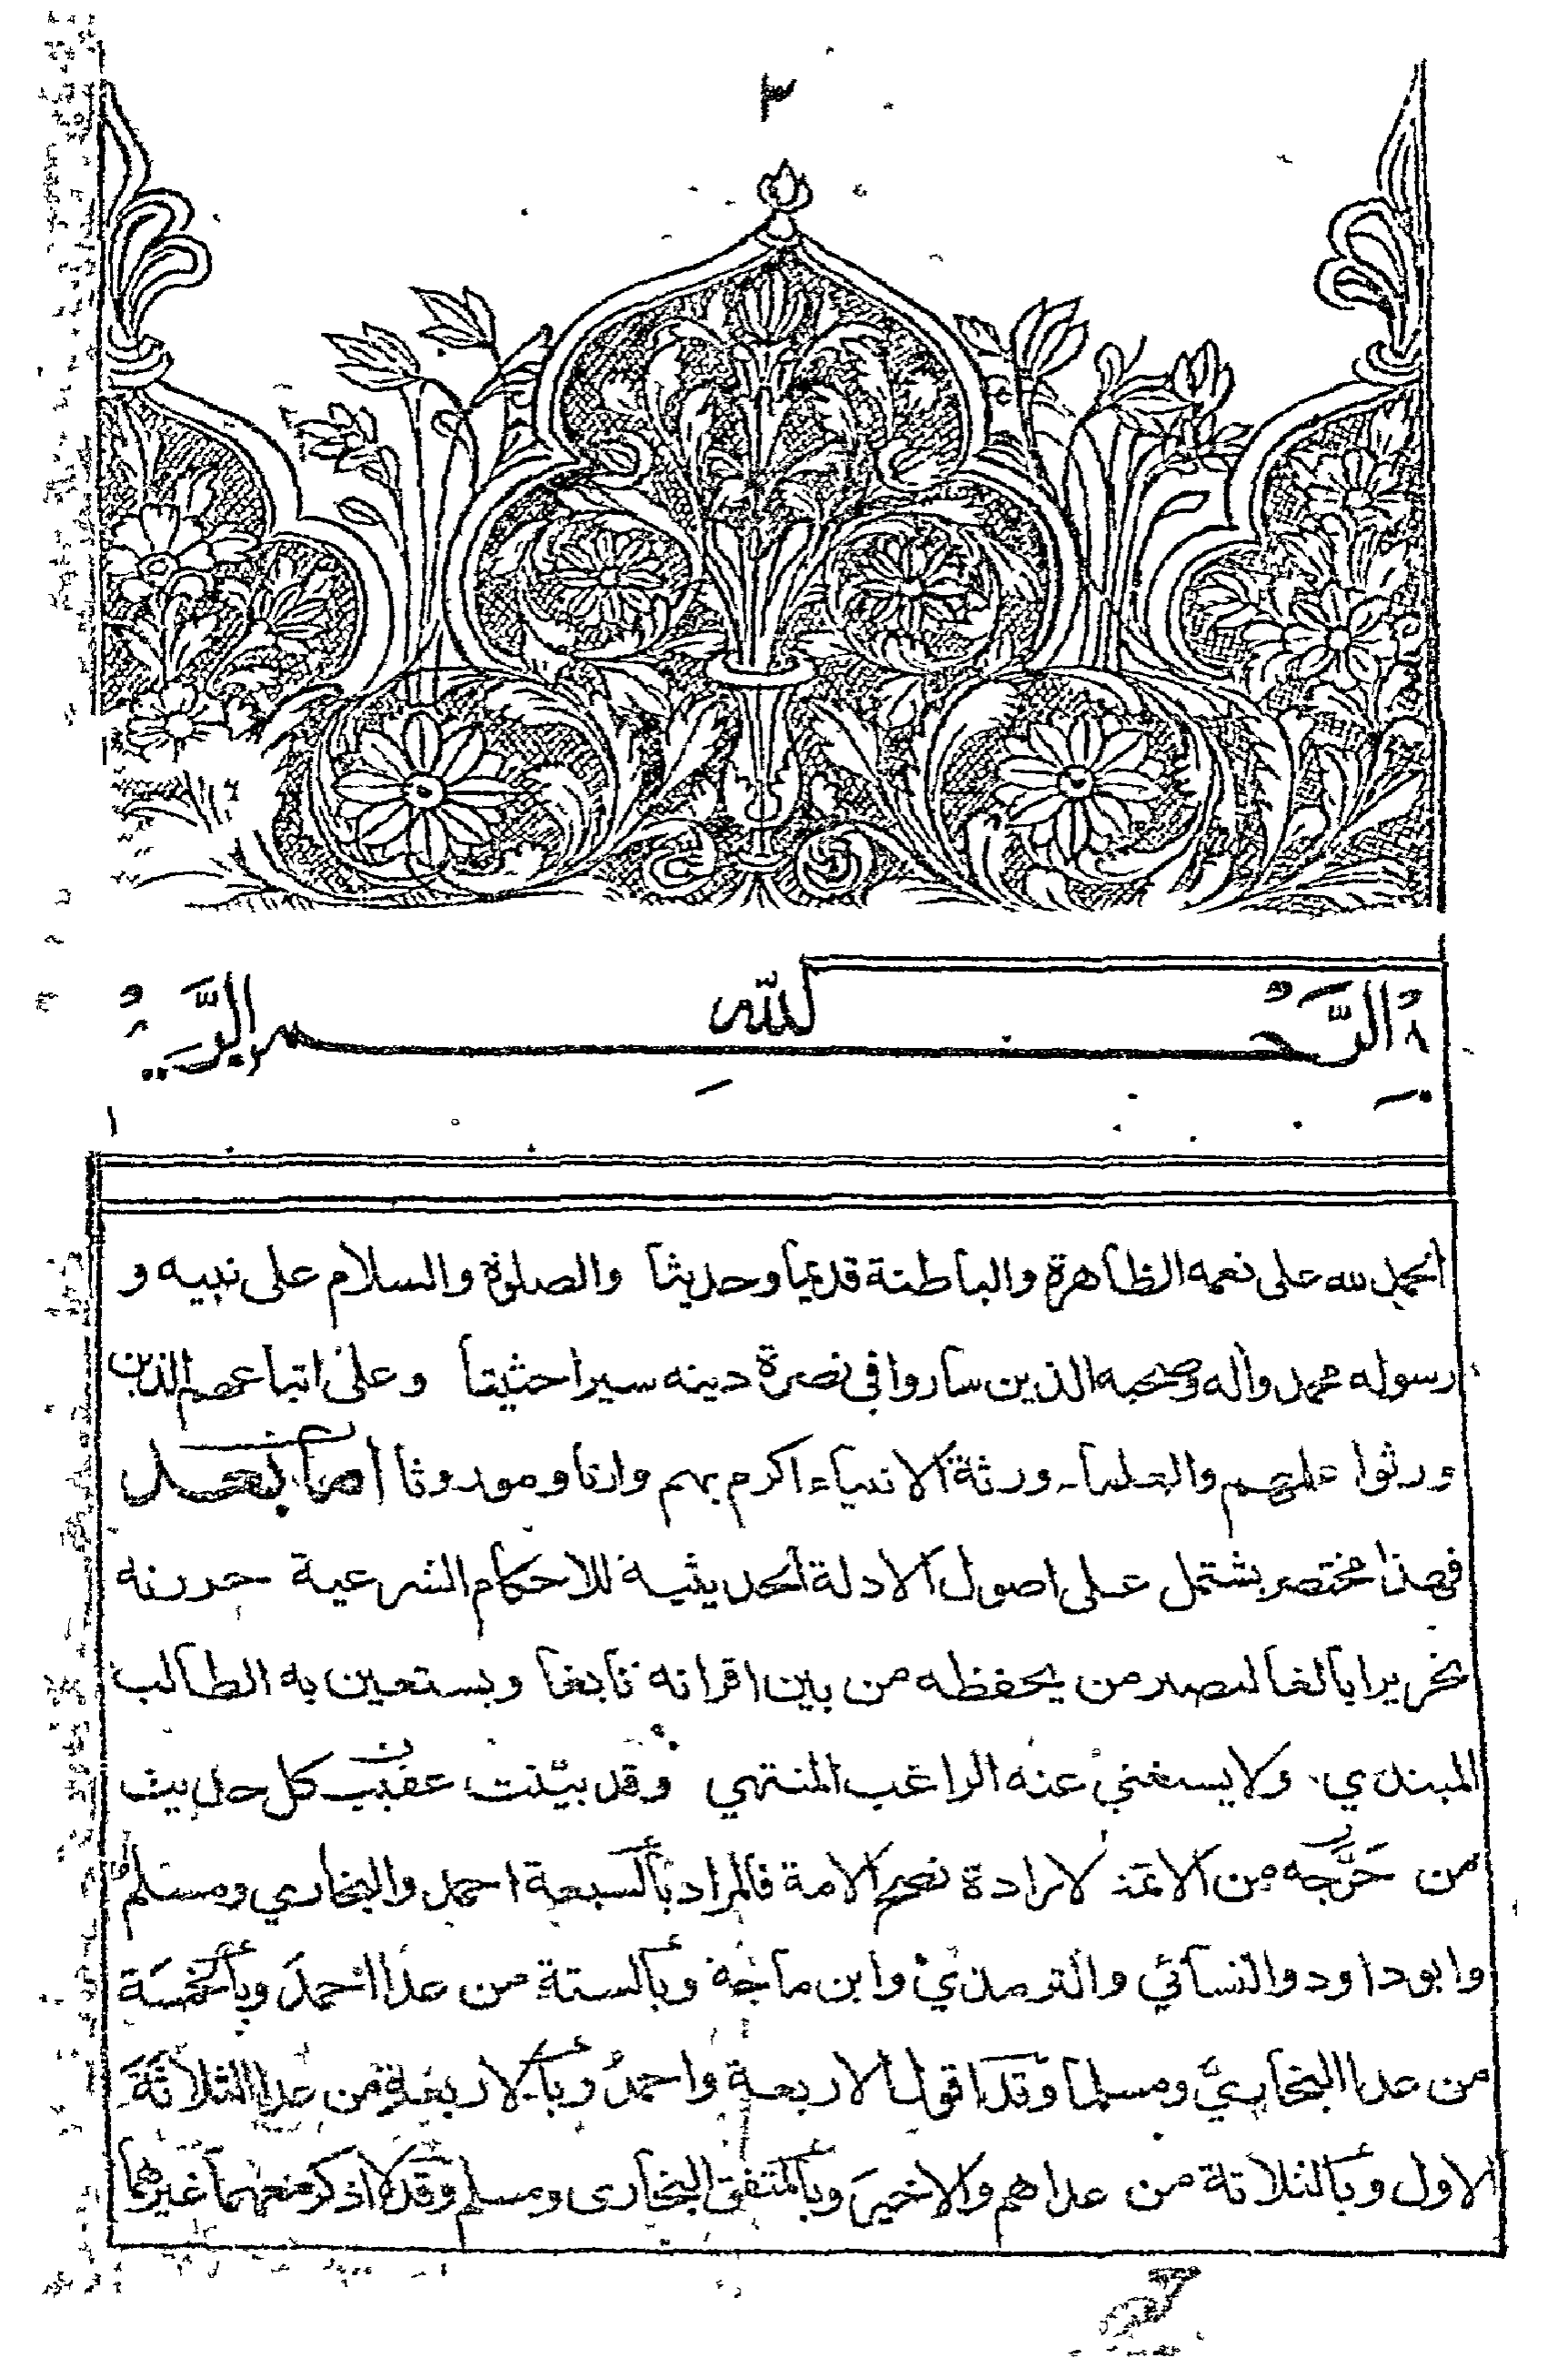 ٣
بسم الله الرحمن الرحيم
الحمد لله على نعمه الظاهرة والباطنة قديما وحديثا والصلوة والسلام على نبيه و
رسوله محمد واله وصحبه الذين ساروا فى نصرة دينه سيرا حثيثا وعلى اتباعهم الذين
ورثوا علمهم والعلماء ورثة الانبياء اكرم بهم وارثا وموروثا اما بعد
فهذا مختصر يشتمل على اصول الادلة الحديثية للاحكام الشرعية حررته
تحريرا بالغا ليصير من يحفظه من بين اقرانه نابغا ويستعين به الطالب
المبتدي ولا يستغني عنه الراغب المنتهي وقد بيّنت عقب كل حديث
من خَرَّجه من الائمة لارادة نصح الامة فالمراد بالسبعة احمد والبخاري ومسلم
وابو داود والنسائي والترمذي وابن ماجة وبالستة من عدا احمد وبالخمسة
من عدا البخاريّ ومسلما وقد اقول الاربعة واحمد وبالاربعة من عدا الثلاثة
الاول وبالثلاثة من عداهم والاخير وبالمتفق البخارى ومسلم وقد لا اذكر معهما غيرهما